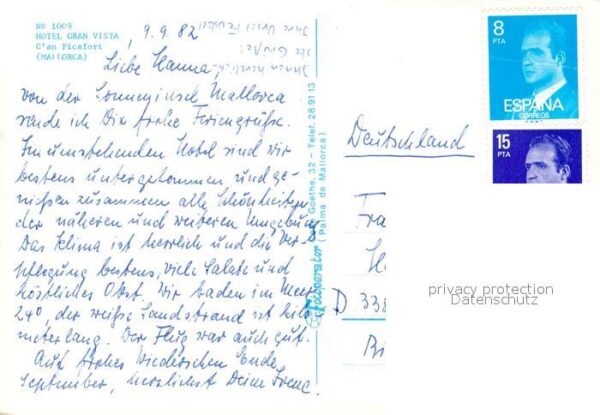 Nº 1009
HOTEL GRAN VISTA
C'an Picafort
(MALLORCA)
9.9.82
Liebe Hanna,
von der Sonneninsel Mallorca
sende ich Dir frohe Feriengrüße.
Im umstehenden Hotel sind wir
bestens untergekommen und ge-
nießen zusammen alle Schönheiten
der näheren und weiteren Umgebung
Das Klima ist herrlich und die Ver-
pflegung bestens, viele Salate und
köstliches Obst. Wir baden im Meer
24°, der weiße Sandstrand ist kilo-
meterlang. Der Flug war auch gut.
Auf frohes Wiedersehen Ende
September, herzlichst Deine Irene
Ihnen herzliche
Grüße!
Ihre
Goethe, 32 - Telef. 28 91 13
(Palma de Mallorca)
8
PTA
ESPAÑA
CORREOS
15
PTA
Deutschland
Fra
H
D 338
privacy protection
Datenschutz